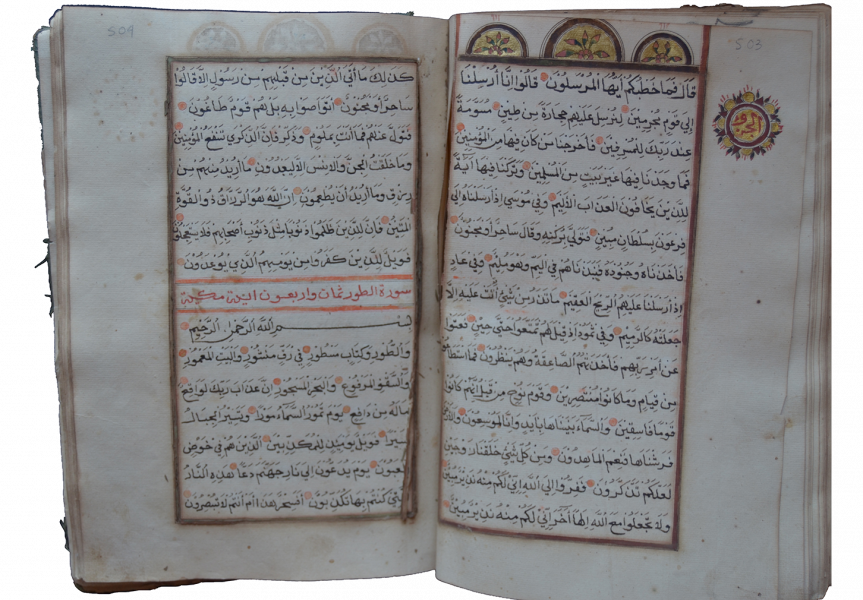 503
قال فما خطبكم أيها المرسلون قالوا إنا أرسلنا
إلى قوم مجرمين لنرسل عليهم حجارة من طين مسومة
عند ربك للمسرفين فأخرجنا من كان فيها من المؤمنين
فما وجدنا فيها غير بيت من المسلمين وتركنا فيها آية
للذين يخافون العذاب الأليم وفي موسى إذ أرسلناه إلى
فرعون بسلطان مبين فتولى بركنه وقال ساحر أو مجنون
فأخذناه وجنوده فنبذناهم في اليم وهو مليم وفي عاد
إذ أرسلنا عليهم الريح العقيم ما تذر من شيء أتت عليه إلا
جعلته كالرميم وفي ثمود إذ قيل لهم تمتعوا حتى حين فعتوا
عن أمر ربهم فأخذتهم الصاعقة وهم ينظرون فما استطاعوا
من قيام وما كانوا منتصرين وقوم نوح من قبل إنهم كانوا
قوما فاسقين والسماء بنيناها بأيد وإنا لموسعون والأرض
فرشناها فنعم الماهدون ومن كل شيء خلقنا زوجين
لعلكم تذكرون ففروا إلى الله إني لكم منه نذير مبين
ولا تجعلوا مع الله إلها آخر إني لكم منه نذير مبين
504
كذلك ما أتى الذين من قبلهم من رسول إلا قالوا
ساحر أو مجنون أتواصوا به بل هم قوم طاغون
فتول عنهم فما أنت بملوم وذكر فإن الذكرى تنفع المؤمنين
وما خلقت الجن والإنس إلا ليعبدون ما أريد منهم من
رزق وما أريد أن يطعمون إن الله هو الرزاق ذو القوة
المتين فإن للذين ظلموا ذنوبا مثل ذنوب أصحابهم فلا يستعجلون
فويل للذين كفروا من يومهم الذي يوعدون
سورة الطور ثمان واربعون اية مكية
بسم الله الرحمن الرحيم
والطور وكتاب مسطور في رق منشور والبيت المعمور
والسقف المرفوع والبحر المسجور إن عذاب ربك لواقع
ما له من دافع يوم تمور السماء مورا وتسير الجبال
سيرا فويل يومئذ للمكذبين الذين هم في خوض
يلعبون يوم يدعون إلى نار جهنم دعا هذه النار
التي كنتم بها تكذبون أفسحر هذا أم أنتم لا تبصرون